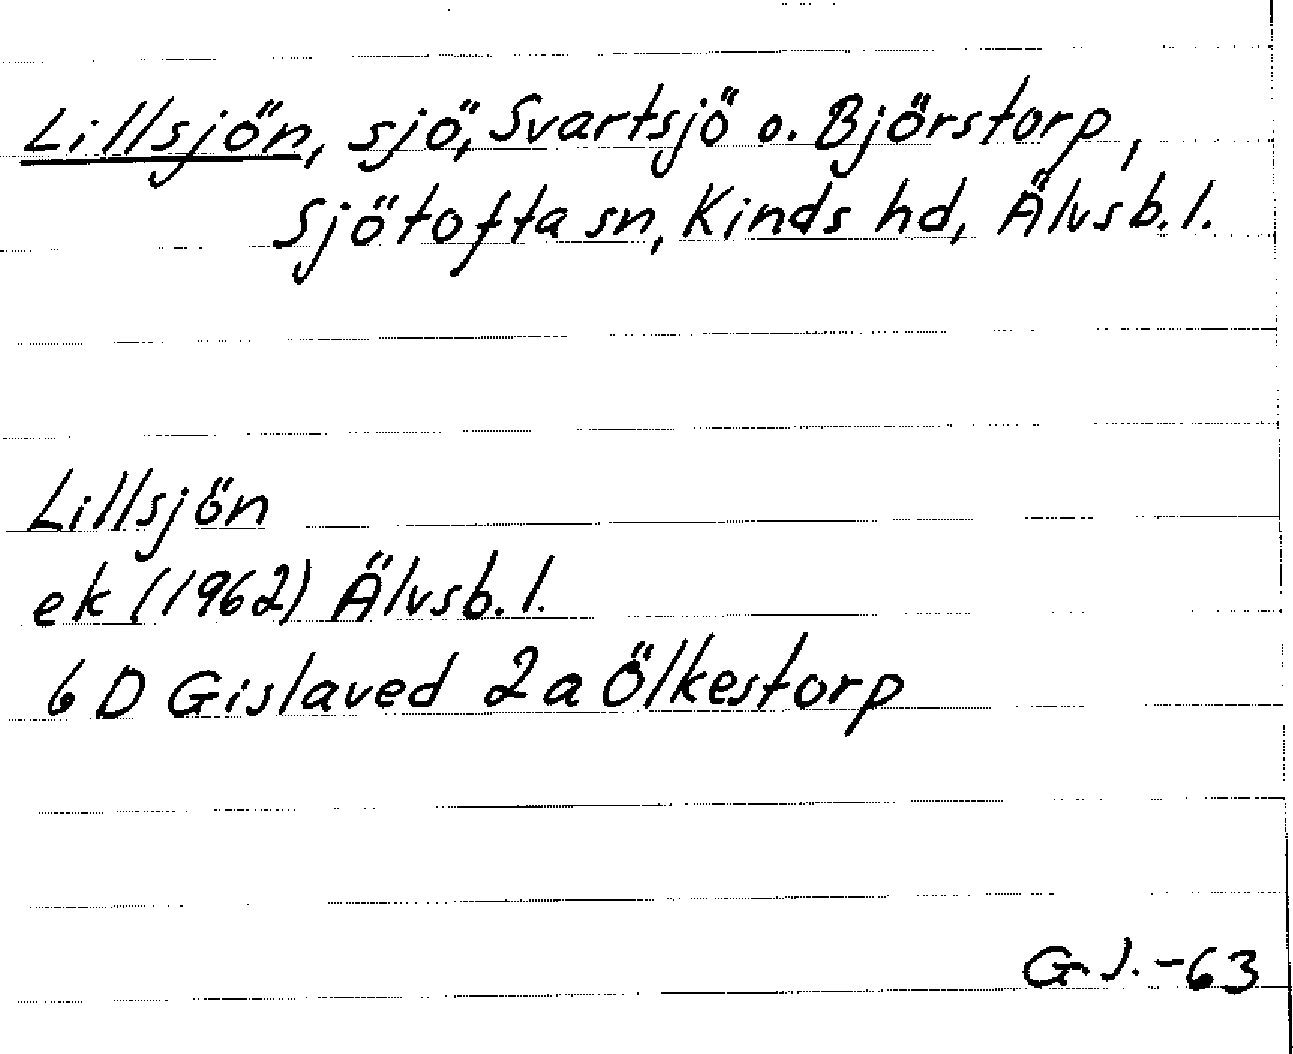 Lillsjön, sjö, Svartsjö o. Björstorp,
Sjötofta sn, Kinds hd, Älvsb. l.
Lillsjön
ek (1962) Älvsb. l.
6 D Gislaved 2a Ölkestorp
G. J. -63